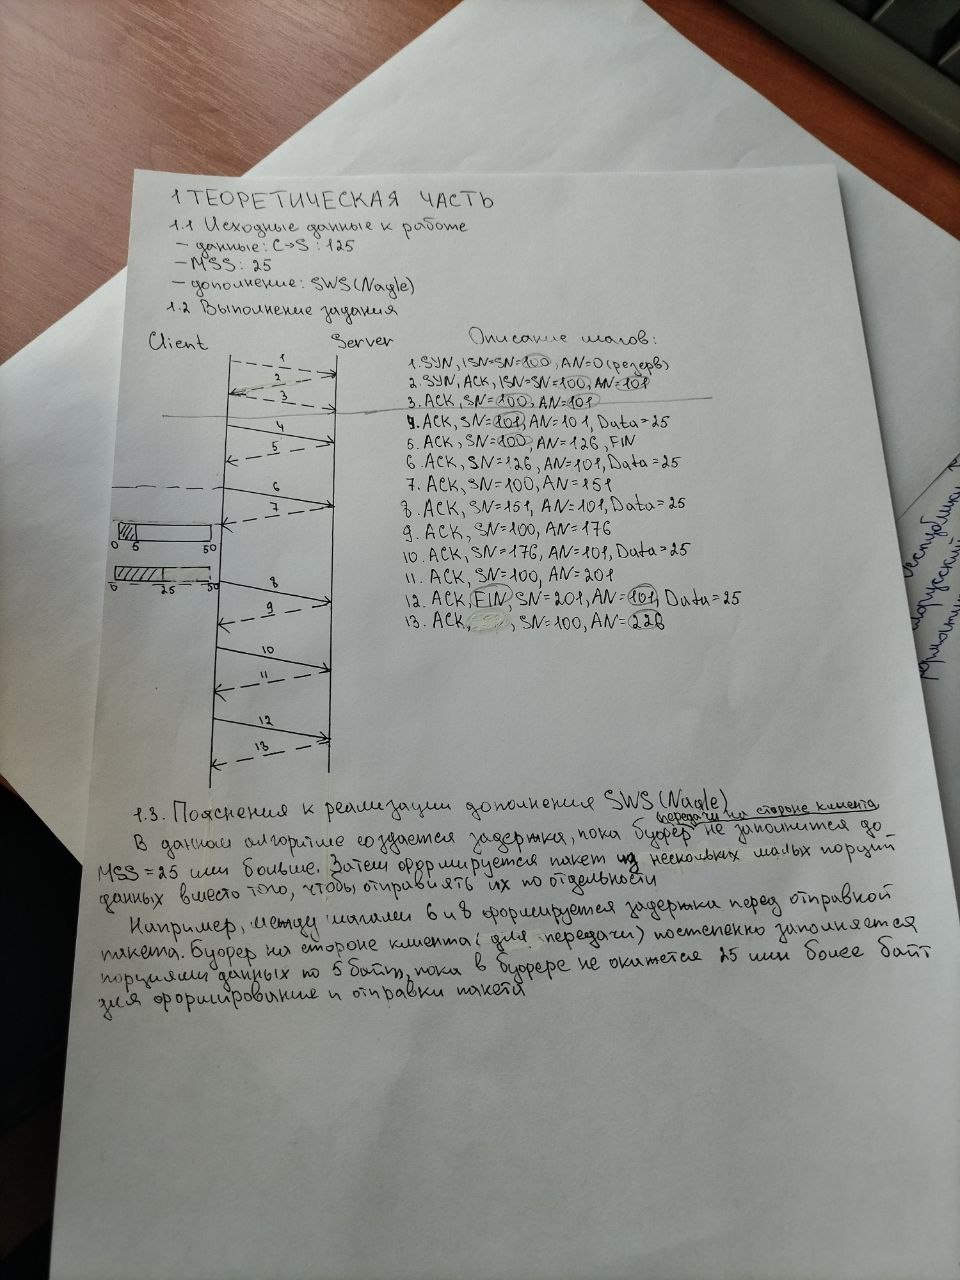 1 ТЕОРЕТИЧЕСКАЯ ЧАСТЬ
1.1 Исходные данные к работе
– данные: C→S: 125
– MSS: 25
– дополнение: SWS(Nagle)
1.2 Выполнение задания
Client Server Описание шагов:
1. SYN, ISN=SN=100, AN=0 (резерв)
2. SYN, ACK, ISN=SN=100, AN=101
3. ACK, SN=100, AN=101
4. ACK, SN=101, AN=101, Data=25
5. ACK, SN=100, AN=126, FIN
6. ACK, SN=126, AN=101, Data=25
7. ACK, SN=100, AN=151
8. ACK, SN=151, AN=101, Data=25
9. ACK, SN=100, AN=176
10. ACK, SN=176, AN=101, Data=25
11. ACK, SN=100, AN=201
12. ACK, FIN, SN=201, AN=101, Data=25
13. ACK, , SN=100, AN=226
1
2
3
4
5
6
7
0 5 50
0 25 50
8
9
10
11
12
13
1.3. Пояснения к реализации дополнения SWS(Nagle)
передачи на стороне клиента
В данном алгоритме создается задержка, пока буфер не заполнится до
MSS=25 или больше. Затем формируется пакет из нескольких малых порций
данных вместо того, чтобы отправлять их по отдельности
Например, между шагами 6 и 8 формируется задержка перед отправкой
пакета. Буфер на стороне клиента (для передачи) постепенно заполняется
порциями данных по 5 байт, пока в буфере не окажется 25 или более байт
для формирования и отправки пакета